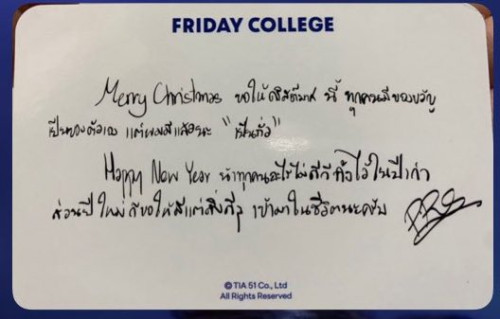 FRIDAY COLLEGE
Merry Christmas ขอให้คริสต์มาส นี้ ทุกคนมีของขวัญ
เป็นของตัวเอง แต่ผมมีแล้วนะ
Happy New Year ทุกคน อะไรไม่ดีทิ้งไว้ในปีเก่า
ส่วนปีใหม่ก็ขอให้มีแต่สิ่งดีๆ เข้ามาในชีวิตนะครับ
© TIA 51 Co., Ltd
All Rights Reserved